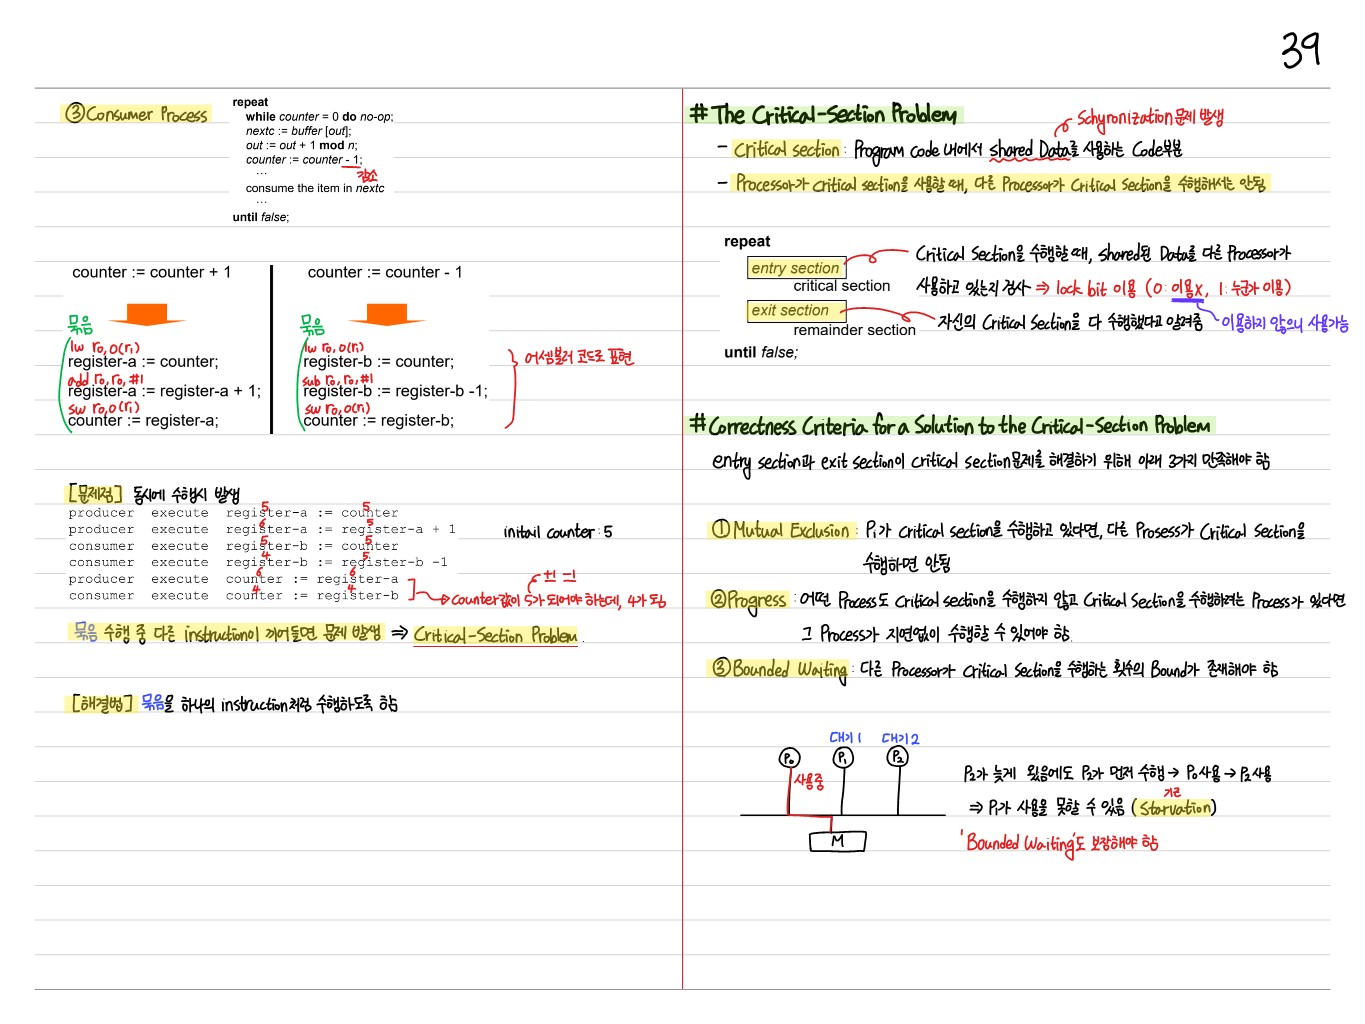 39
③ Consumer Process
repeat
while counter = 0 do no-op;
nextc := buffer [out];
out := out + 1 mod n;
counter := counter - 1;
감소
...
consume the item in nextc
...
until false;
counter := counter + 1
묶음
lw r0, 0(r1)
register-a := counter;
add r0, r0, #1
register-a := register-a + 1;
sw r0, 0(r1)
counter := register-a;
counter := counter - 1
묶음
lw r0, 0(r1)
register-b := counter;
sub r0, r0, #1
register-b := register-b -1;
sw r0, 0(r1)
counter := register-b;
어셈블러 코드로 표현
[문제점] 동시에 수행시 발생
5 5
producer execute register-a := counter
6 5
producer execute register-a := register-a + 1
initail counter : 5
5 5
consumer execute register-b := counter
4 5
consumer execute register-b := register-b -1
6 6
producer execute counter := register-a
4 4
consumer execute counter := register-b
+1 -1
counter값이 5가 되어야 하는데, 4가 됨
묶음 수행 중 다른 instruction이 끼어들면 문제 발생 ⇒ Critical-Section Problem.
[해결법] 묶음을 하나의 instruction처럼 수행하도록 함
# The Critical-Section Problem
Schyronization 문제 발생
- Critical section : Program code 내에서 shared Data를 사용하는 Code부분
- Processor가 critical section을 사용할 때, 다른 Processor가 Critical Section을 수행해서는 안됨
repeat
entry section
critical section
exit section
remainder section
until false;
Critical Section을 수행할 때, shared된 Data를 다른 Processor가
사용하고 있는지 검사 ⇒ lock bit 이용 (0 : 이용x, 1 : 누군가 이용)
자신의 Critical Section을 다 수행했다고 알려줌
이용하지 않으니 사용가능
# Correctness Criteria for a Solution to the Critical-Section Problem
entry section과 exit section이 critical section문제를 해결하기 위해 아래 3가지 만족해야 함
① Mutual Exclusion : Pi가 critical section을 수행하고 있다면, 다른 Prosess가 Critical Section을
수행하면 안됨
② Progress : 어떤 Process도 Critical section을 수행하지 않고 Critical Section을 수행하려는 Process가 있다면
그 Process가 지연없이 수행할 수 있어야 함.
③ Bounded Waiting : 다른 Processor가 Critical Section을 수행하는 횟수의 Bound가 존재해야 함
대기1 대기2
P0 P1 P2
사용중
M
P2가 늦게 왔음에도 P2가 먼저 수행 → P0사용 → P2사용
기근
⇒ P1가 사용을 못할 수 있음 (Starvation)
'Bounded Waiting'도 보장해야 함